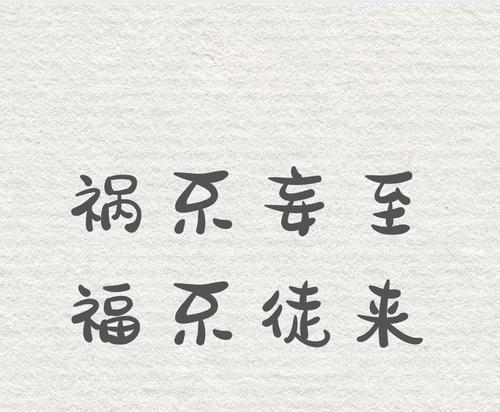 祸不妄至
福不徒来